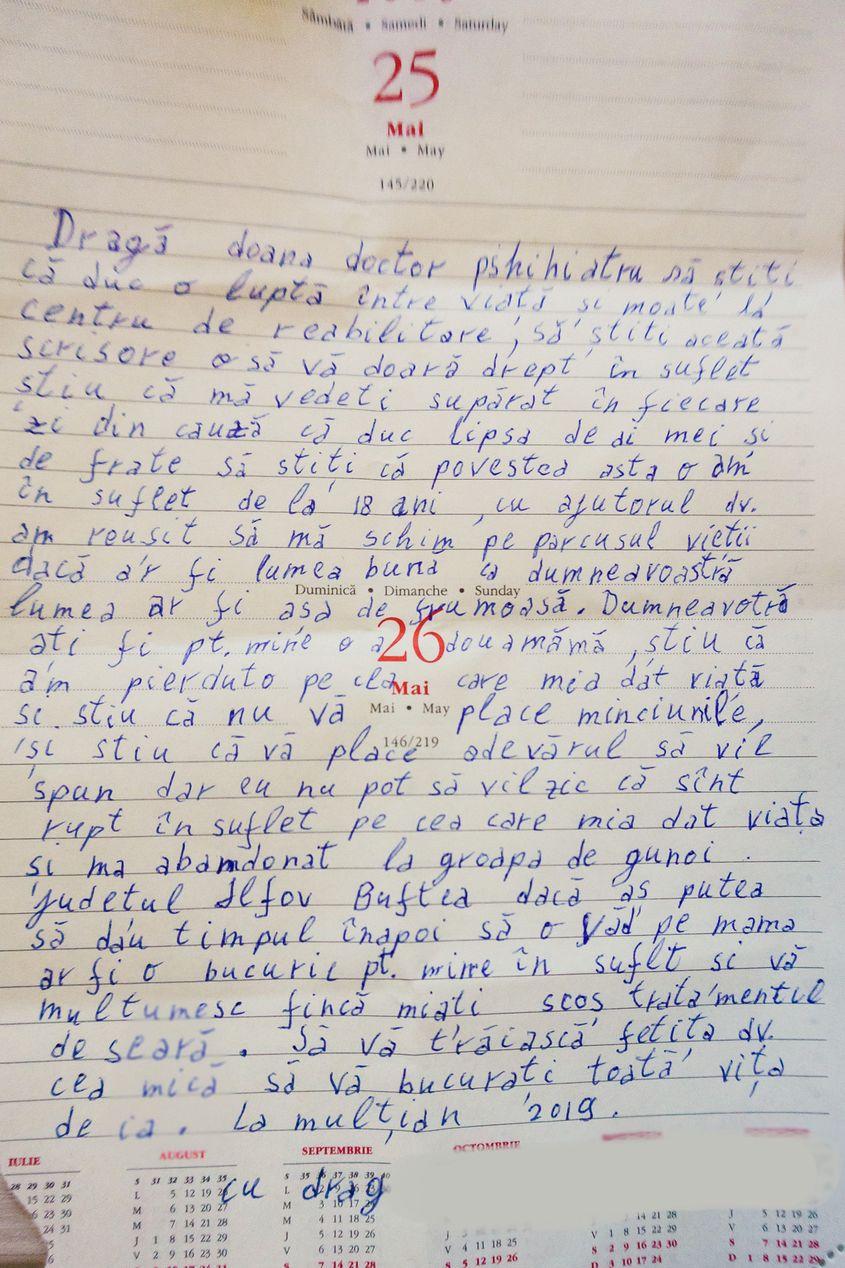 Sâmbătă • Samedi • Saturday
25
Mai
Mai • May
145/220
Dragă doana doctor pshihiatru să stiti
că duc o luptă între viată si moate la
centru de reabilitare, să știti aceată
scrisore o să vă doară drept în suflet
stiu că mă vedeti supărat în fiecare
zi din cauză că duc lipsa de ai mei și
de frate să stiți că povestea asta o am
în suflet de la 18 ani, cu ajutorul dv.
am reusit să mă schim pe parcusul vietii
dacă ar fi lumea bună ca dumneavoastră
Duminică • Dimanche • Sunday
lumea ar fi asa de frumoasă. Dumneavotră
26
ati fi pt. mine o a doua mămă, stiu că
am pierduto pe cea care mia dat viată
Mai
si stiu că nu vă place minciunile,
Mai • May
și stiu că vă place adevărul să vil
146/219
spun dar eu nu pot să vil zic că sînt
rupt în suflet pe cea care mia dat viața
si ma abamdonat la groapa de gunoi.
judetul Ilfov Buftea dacă aș putea
să dau timpul înapoi să o văd pe mama
ar fi o bucurie pt. mine în suflt si vă
multumesc fincă miati scos tratamentul
de seară. Să vă trăiască fetita dv.
cea mică să vă bucurati toată vița
de ia. La mulțian 2019.
IULIE AUGUST SEPTEMBRIE OCTOMBRIE
cu drag